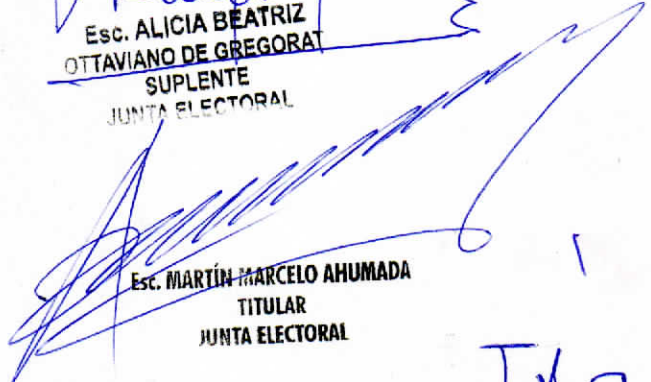 Esc. ALICIA BEATRIZ
OTTAVIANO DE GREGORAT
SUPLENTE
JUNTA ELECTORAL
Esc. MARTÍN MARCELO AHUMADA
TITULAR
JUNTA ELECTORAL